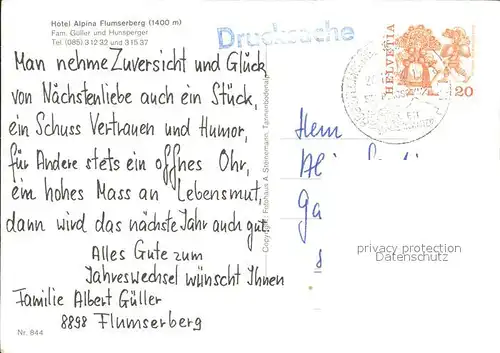 Hotel Alpina Flumserberg (1400 m)
Fam. Güller und Hunsperger
Tel. (085) 3 12 32 und 3 15 37
Drucksache
HELVETIA
20
Man nehme Zuversicht und Glück
von Nächstenliebe auch ein Stück,
ein Schuss Vertrauen und Humor,
für Andere stets ein offnes Ohr,
ein hohes Mass an Lebensmut,
dann wird das nächste Jahr auch gut.
Alles Gute zum
Jahreswechsel wünscht Ihnen
Familie Albert Güller
8898 Flumserberg
Nr. 844
Copyright: Fotohaus A. Steinemann, Tannenbodenalp
Hern
privacy protection
Datenschutz